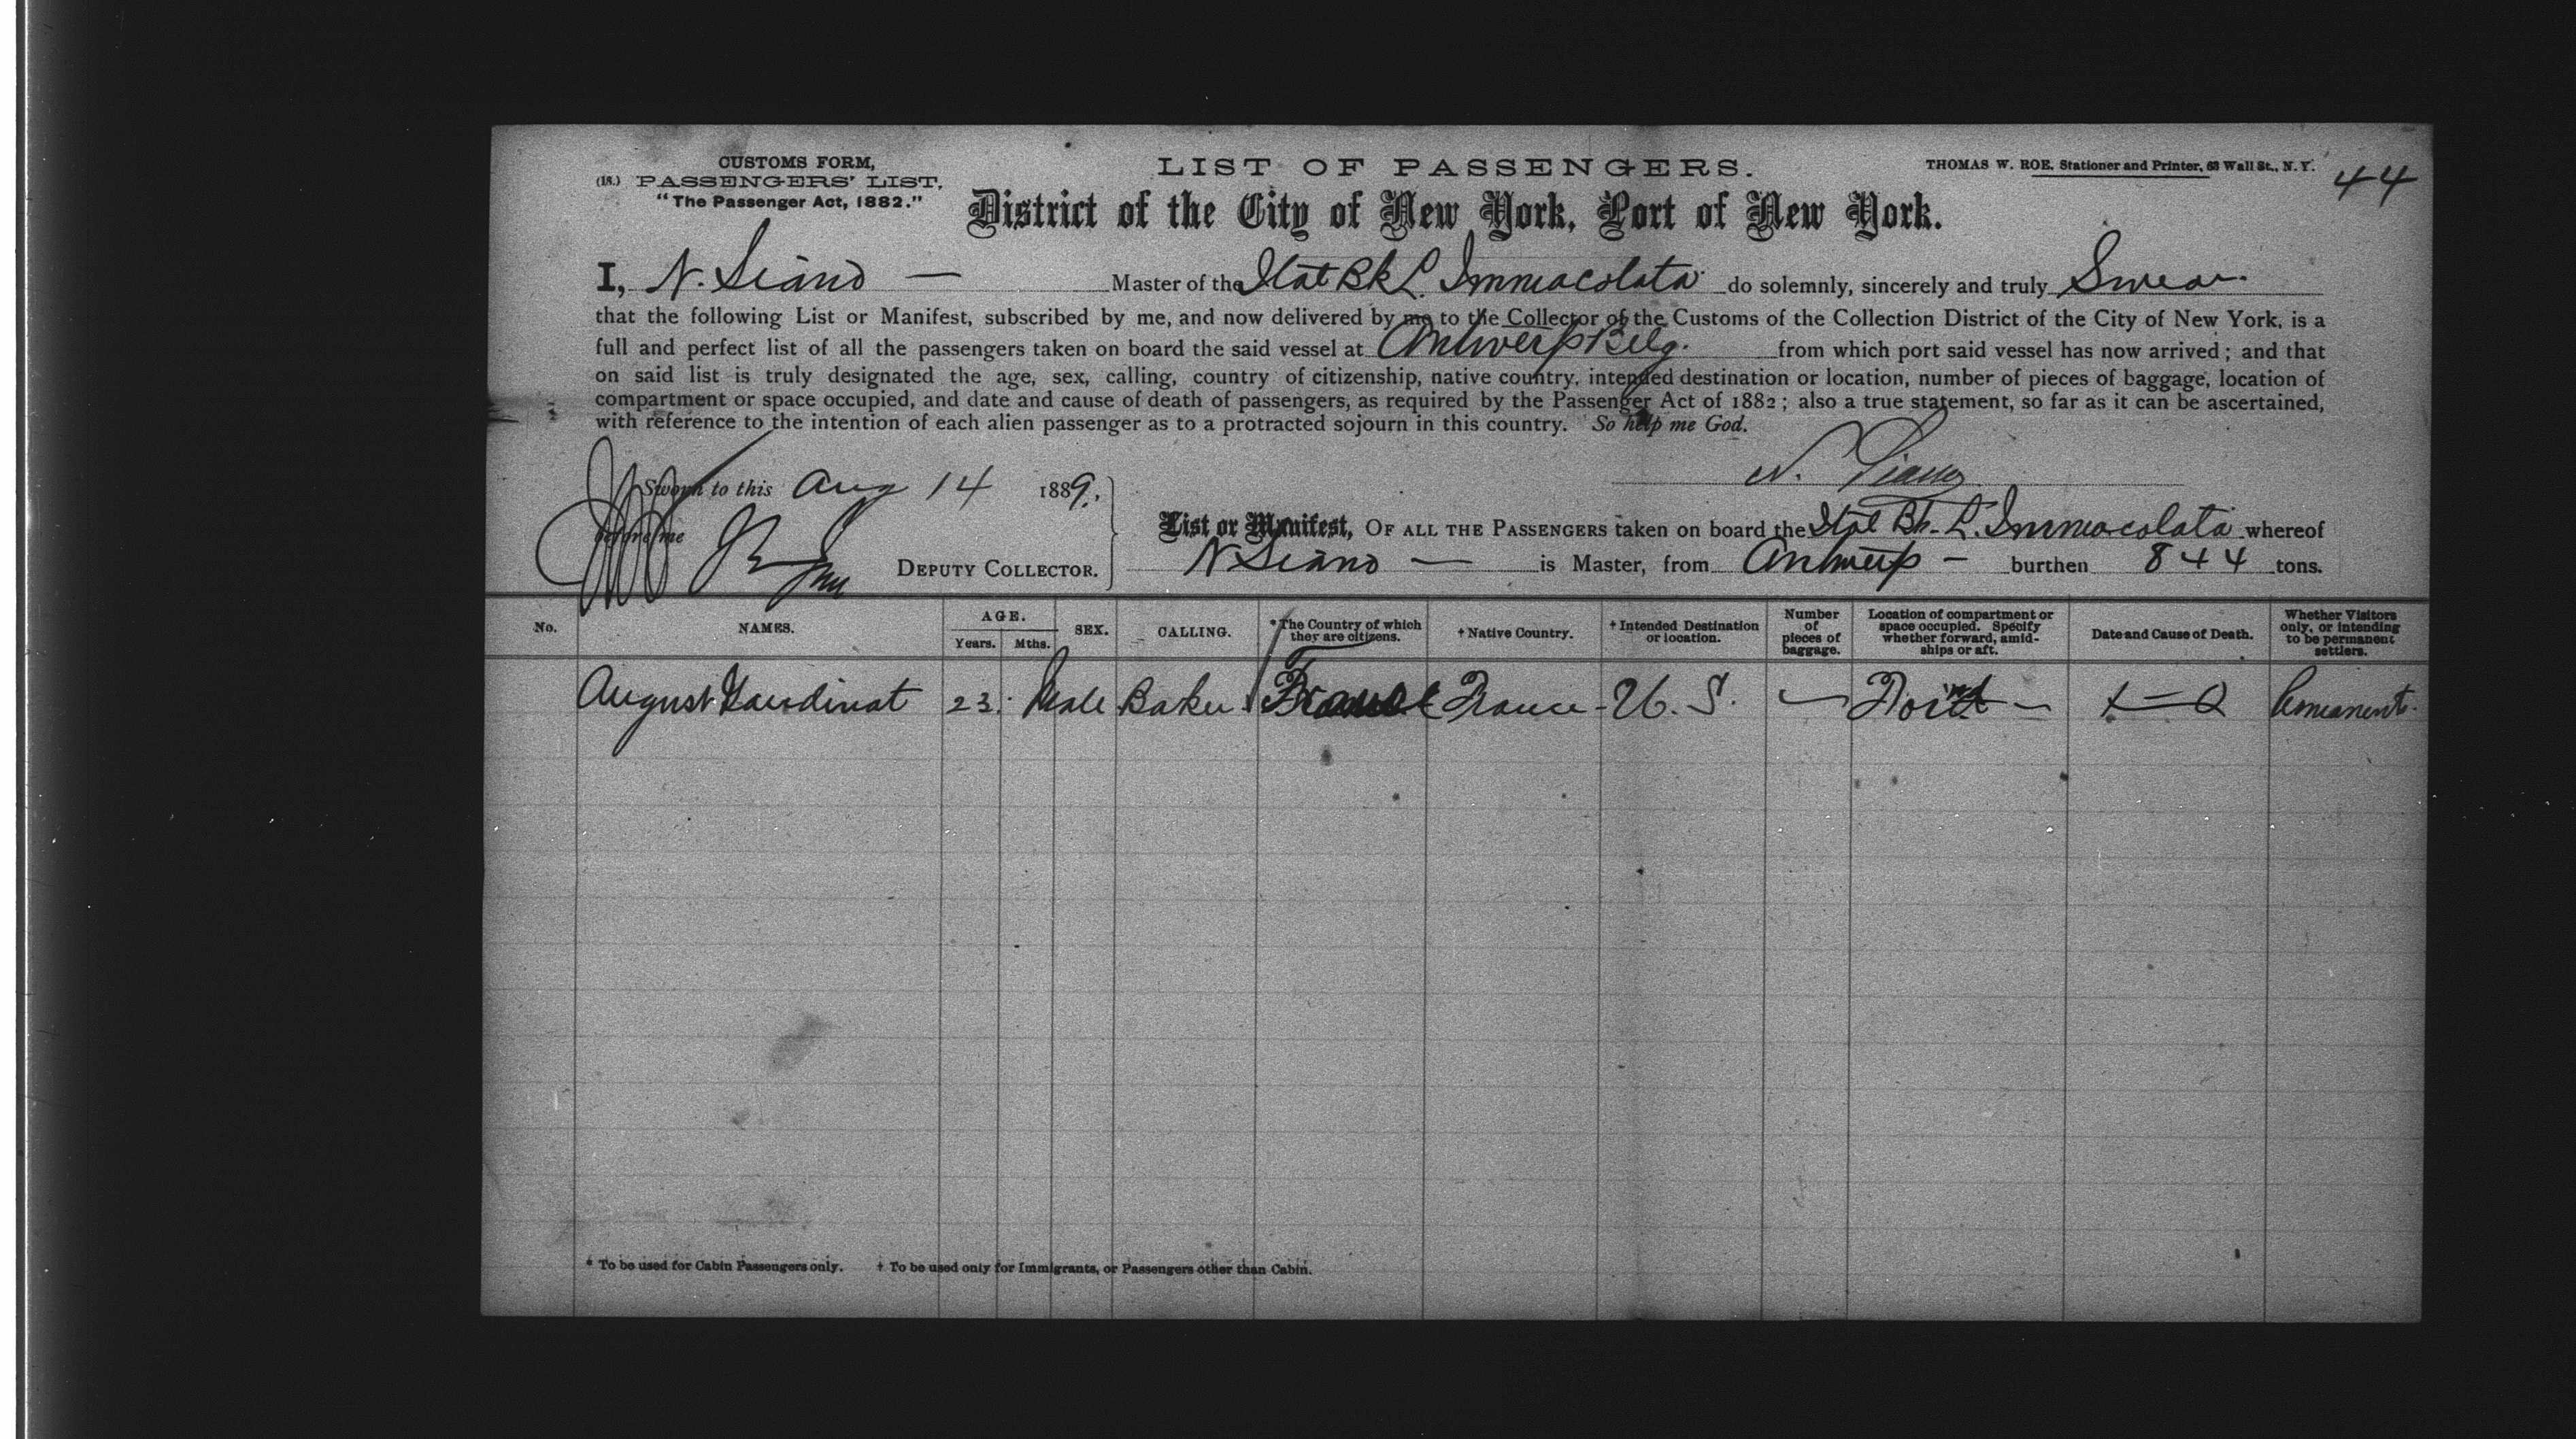 CUSTOMS FORM,
(18.) PASSENGERS' LIST,
"The Passenger Act, 1882."
LIST OF PASSENGERS.
THOMAS W. ROE, Stationer and Printer, 63 Wall St., N. Y.
44
District of the City of New York, Port of New York.
I, N. Siano — Master of the Ital Bk L. Immacolata do solemnly, sincerely and truly Swear
that the following List or Manifest, subscribed by me, and now delivered by me to the Collector of the Customs of the Collection District of the City of New York, is a
full and perfect list of all the passengers taken on board the said vessel at Antwerp Belg. from which port said vessel has now arrived; and that
on said list is truly designated the age, sex, calling, country of citizenship, native country, intended destination or location, number of pieces of baggage, location of
compartment or space occupied, and date and cause of death of passengers, as required by the Passenger Act of 1882; also a true statement, so far as it can be ascertained,
with reference to the intention of each alien passenger as to a protracted sojourn in this country. So help me God.
N. Siano
Sworn to this Aug 14 1889.
before me
DEPUTY COLLECTOR.
List or Manifest, OF ALL THE PASSENGERS taken on board the Ital Bk. L. Immacolata whereof
N Siano — is Master, from Antwerp — burthen 844 tons.
No. NAMES. AGE. Years. Mths. SEX. CALLING. *The Country of which they are citizens. †Native Country. †Intended Destination or location. Number of pieces of baggage. Location of compartment or space occupied. Specify whether forward, amidships or aft. Date and Cause of Death. Whether Visitors only, or intending to be permanent settlers.
August Gaudinat 23. Male Baker France France - U. S. — — Permanent.
* To be used for Cabin Passengers only. † To be used only for Immigrants, or Passengers other than Cabin.